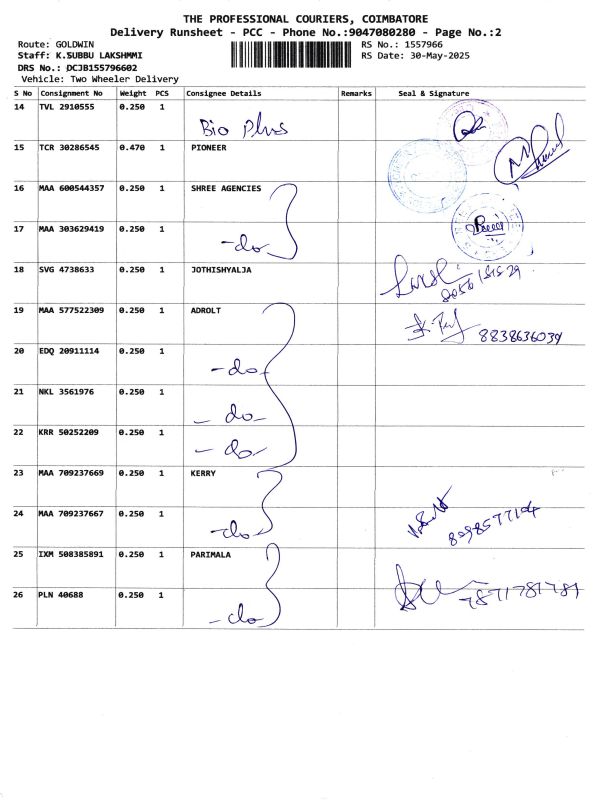 THE PROFESSIONAL COURIERS, COIMBATORE
Delivery Runsheet - PCC - Phone No.:9047080280 - Page No.:2
Route: GOLDWIN RS No.: 1557966
Staff: K.SUBBU LAKSHMMI RS Date: 30-May-2025
DRS No.: DCJB155796602
Vehicle: Two Wheeler Delivery
S No Consignment No Weight PCS Consignee Details Remarks Seal & Signature
14 TVL 2910555 0.250 1 Bio Plus
15 TCR 30286545 0.470 1 PIONEER
16 MAA 600544357 0.250 1 SHREE AGENCIES
17 MAA 303629419 0.250 1 -do-
18 SVG 4738633 0.250 1 JOTHISHYALJA
19 MAA 577522309 0.250 1 ADROLT 8838636039
20 EDQ 20911114 0.250 1 -do-
21 NKL 3561976 0.250 1 -do-
22 KRR 50252209 0.250 1 -do-
23 MAA 709237669 0.250 1 KERRY
24 MAA 709237667 0.250 1 -do-
25 IXM 508385891 0.250 1 PARIMALA
26 PLN 40688 0.250 1 -do- 7871781781